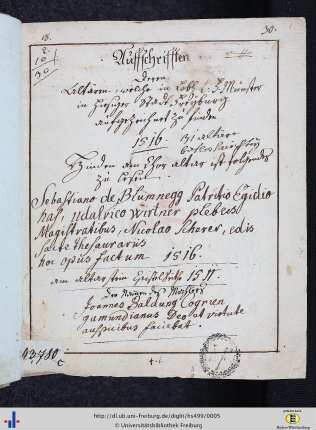 18.
30.
2.
10
30
Auffschrifften
Deren
Altären, welche in Löbl: U: F: Münster
in hiesiger Stadt Freyburg
auffgezeichnet zu finden
1516. 31 altäre
Hinden am Chor altar ist folgendes
zu lesen.
Sebastiano de Blumnegg Patritio Egidio
has, Udalrico Wirtner plebeis
Magistratibus, Nicolao Scherer, edis
sacre Thesaurarius
hoc opus factum 1516.
am altarstein 1511.
Der Namen des Mahlers
Joannes Baldung Cognien
gamundianus Deo et virtute
auspicibus faciebat.
43780
c
http://dl.ub.uni-freiburg.de/diglit/hs499/0005
© Universitätsbibliothek Freiburg
Baden-Württemberg